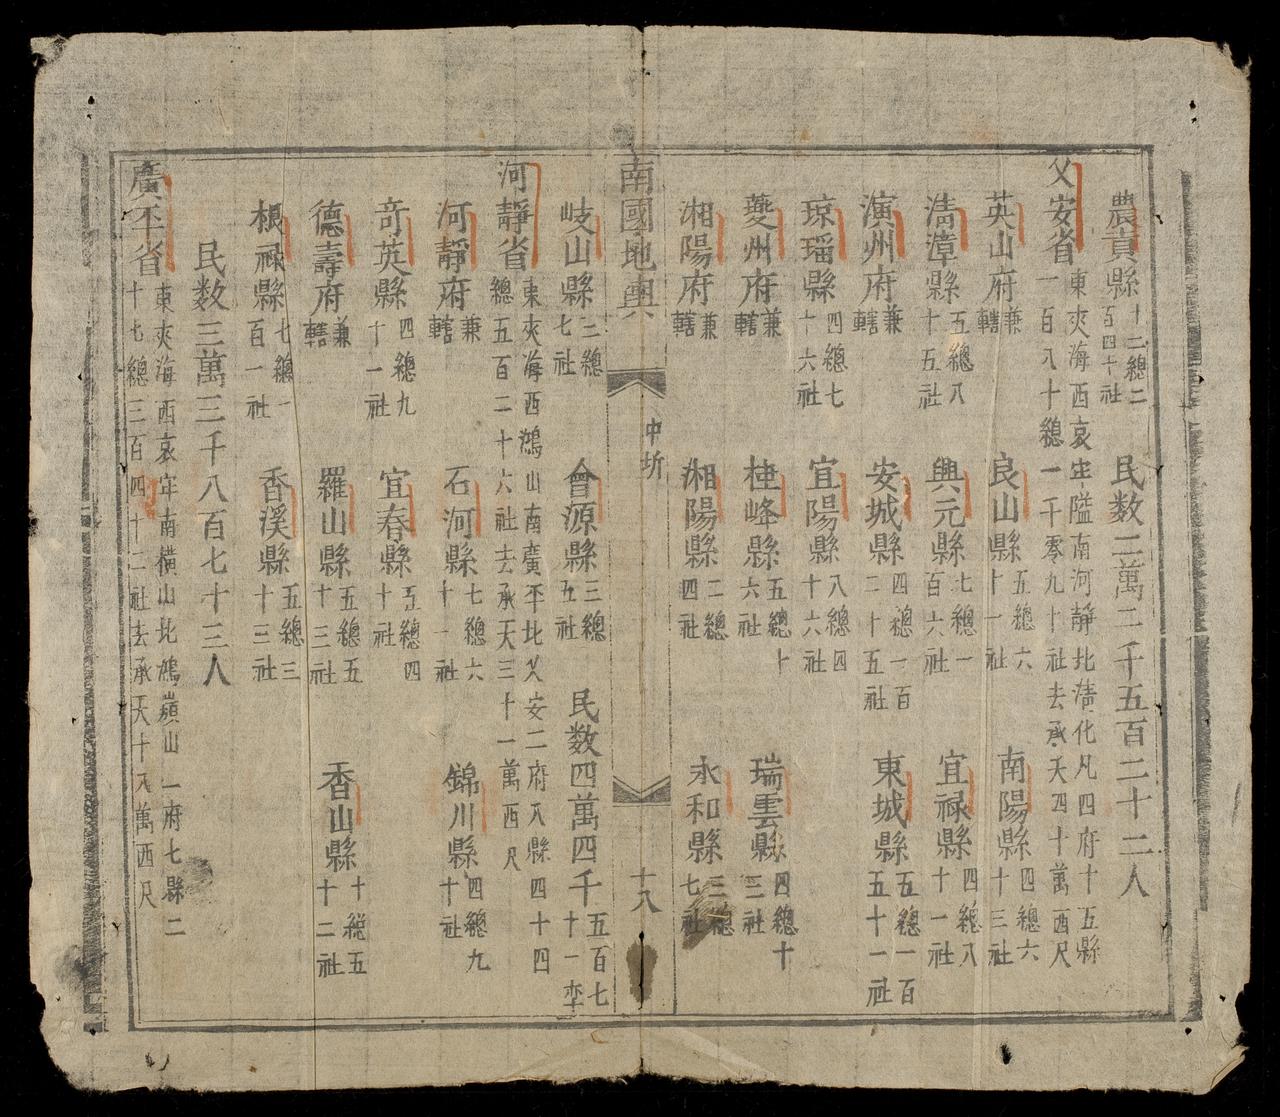 農貢縣 十二總二百四十社 民数二萬二千五百二十二人
乂安省 東夾海西哀牢隘南河靜北淸化凡四府十五縣一百八十總一千零九十社去承天四十萬西尺
英山府 兼轄 良山縣 五總六十一社 南陽縣 四總六十三社
淸漳縣 五總八十五社 興元縣 七總一百六社 宜禄縣 四總八十一社
演州府 兼轄 安城縣 四總一百二十五社 東城縣 五總一百五十一社
琼瑠縣 四總七十六社 宜陽縣 八總四十六社
夔州府 兼轄 桂峰縣 五總十六社 瑞雲縣 四總十三社
湘陽府 兼轄 湘陽縣 二總四社 永和縣 三總七社
南國地輿 中圻 十八
岐山縣 三總七社 會源縣 三總五社 民数四萬四千五百七十一率
河靜省 東夾海西鴻山南廣平北乂安二府八縣四十四總五百二十六社去承天三十一萬西尺
河靜府 兼轄 石河縣 七總六十一社 錦川縣 四總九十社
竒英縣 四總九十一社 宜春縣 五總四十社
德壽府 兼轄 羅山縣 五總五十三社 香山縣 十總五十二社
根禄縣 七總一百一社 香溪縣 五總三十三社
民数三萬三千八百七十三人
廣平省 東夾海西哀牢南橫山北鴻嶺山一府七縣二十七總三百四十二社去承天十八萬西尺